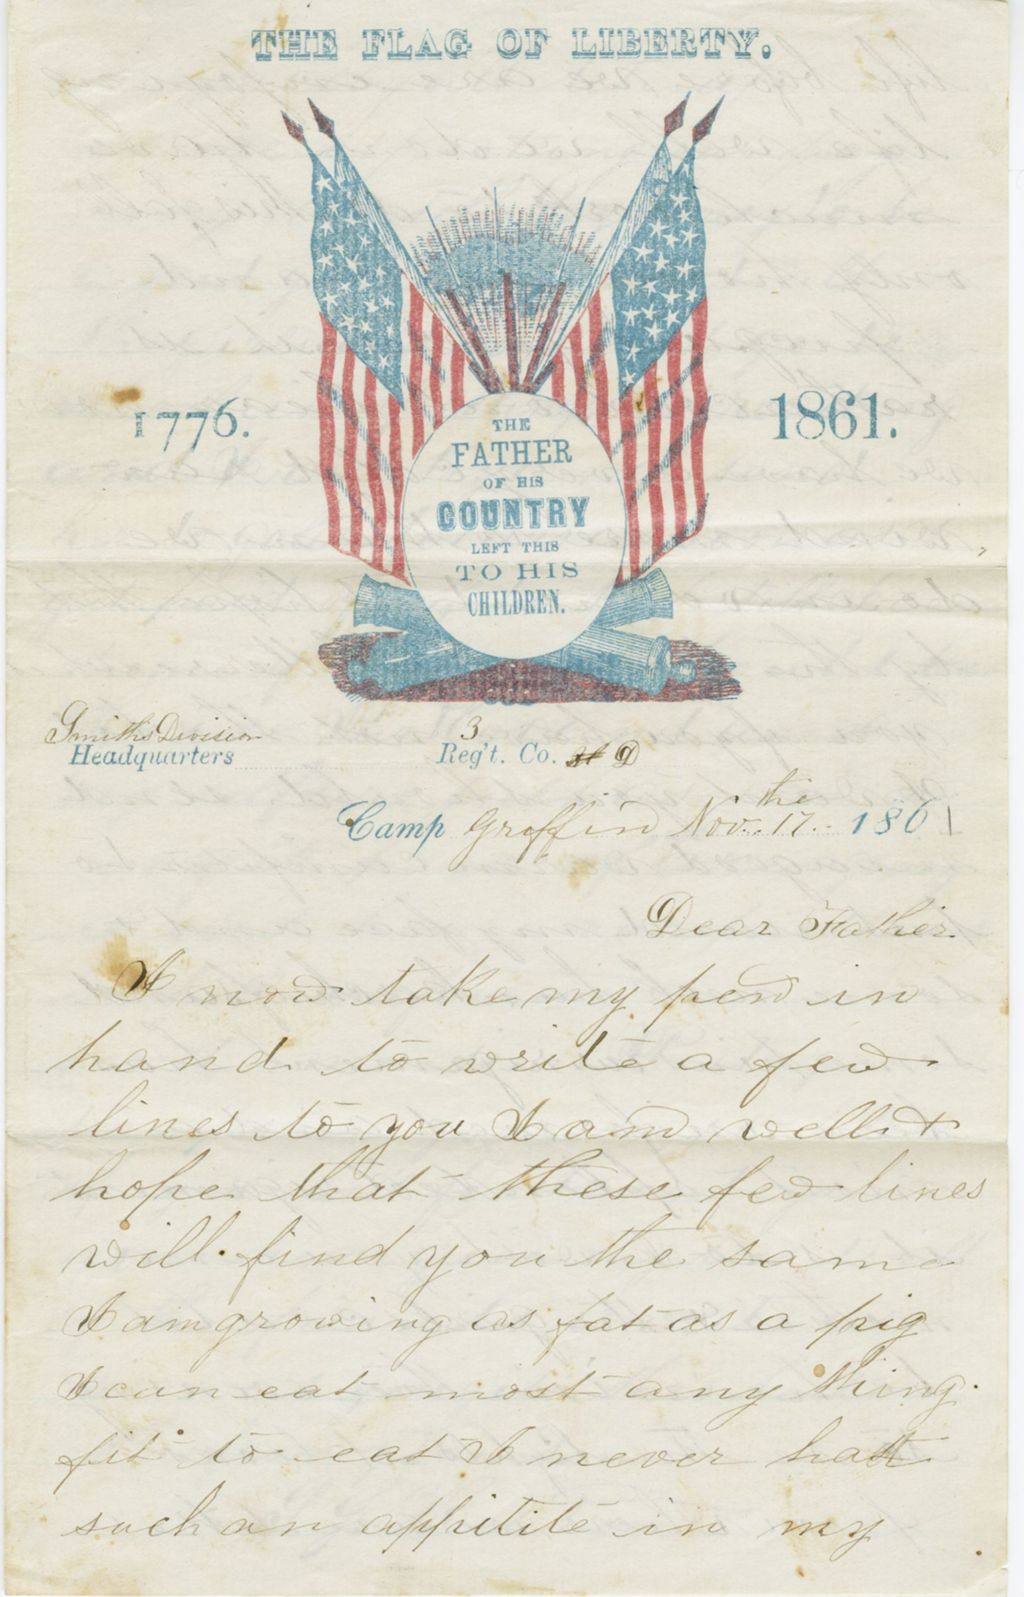 THE FLAG OF LIBERTY.
1776.
1861.
THE
FATHER
OF HIS
COUNTRY
LEFT THIS
TO HIS
CHILDREN.
Smiths Division
Headquarters 3 Reg't. Co. H D
Camp Griffin Nov. 17 the 1861
Dear Father.
I now take my pen in
hand to write a few
lines to you I am well &
hope that these few lines
will find you the same
I am growing as fat as a pig
I can eat most any thing
fit to eat I never had
such an appitite in my